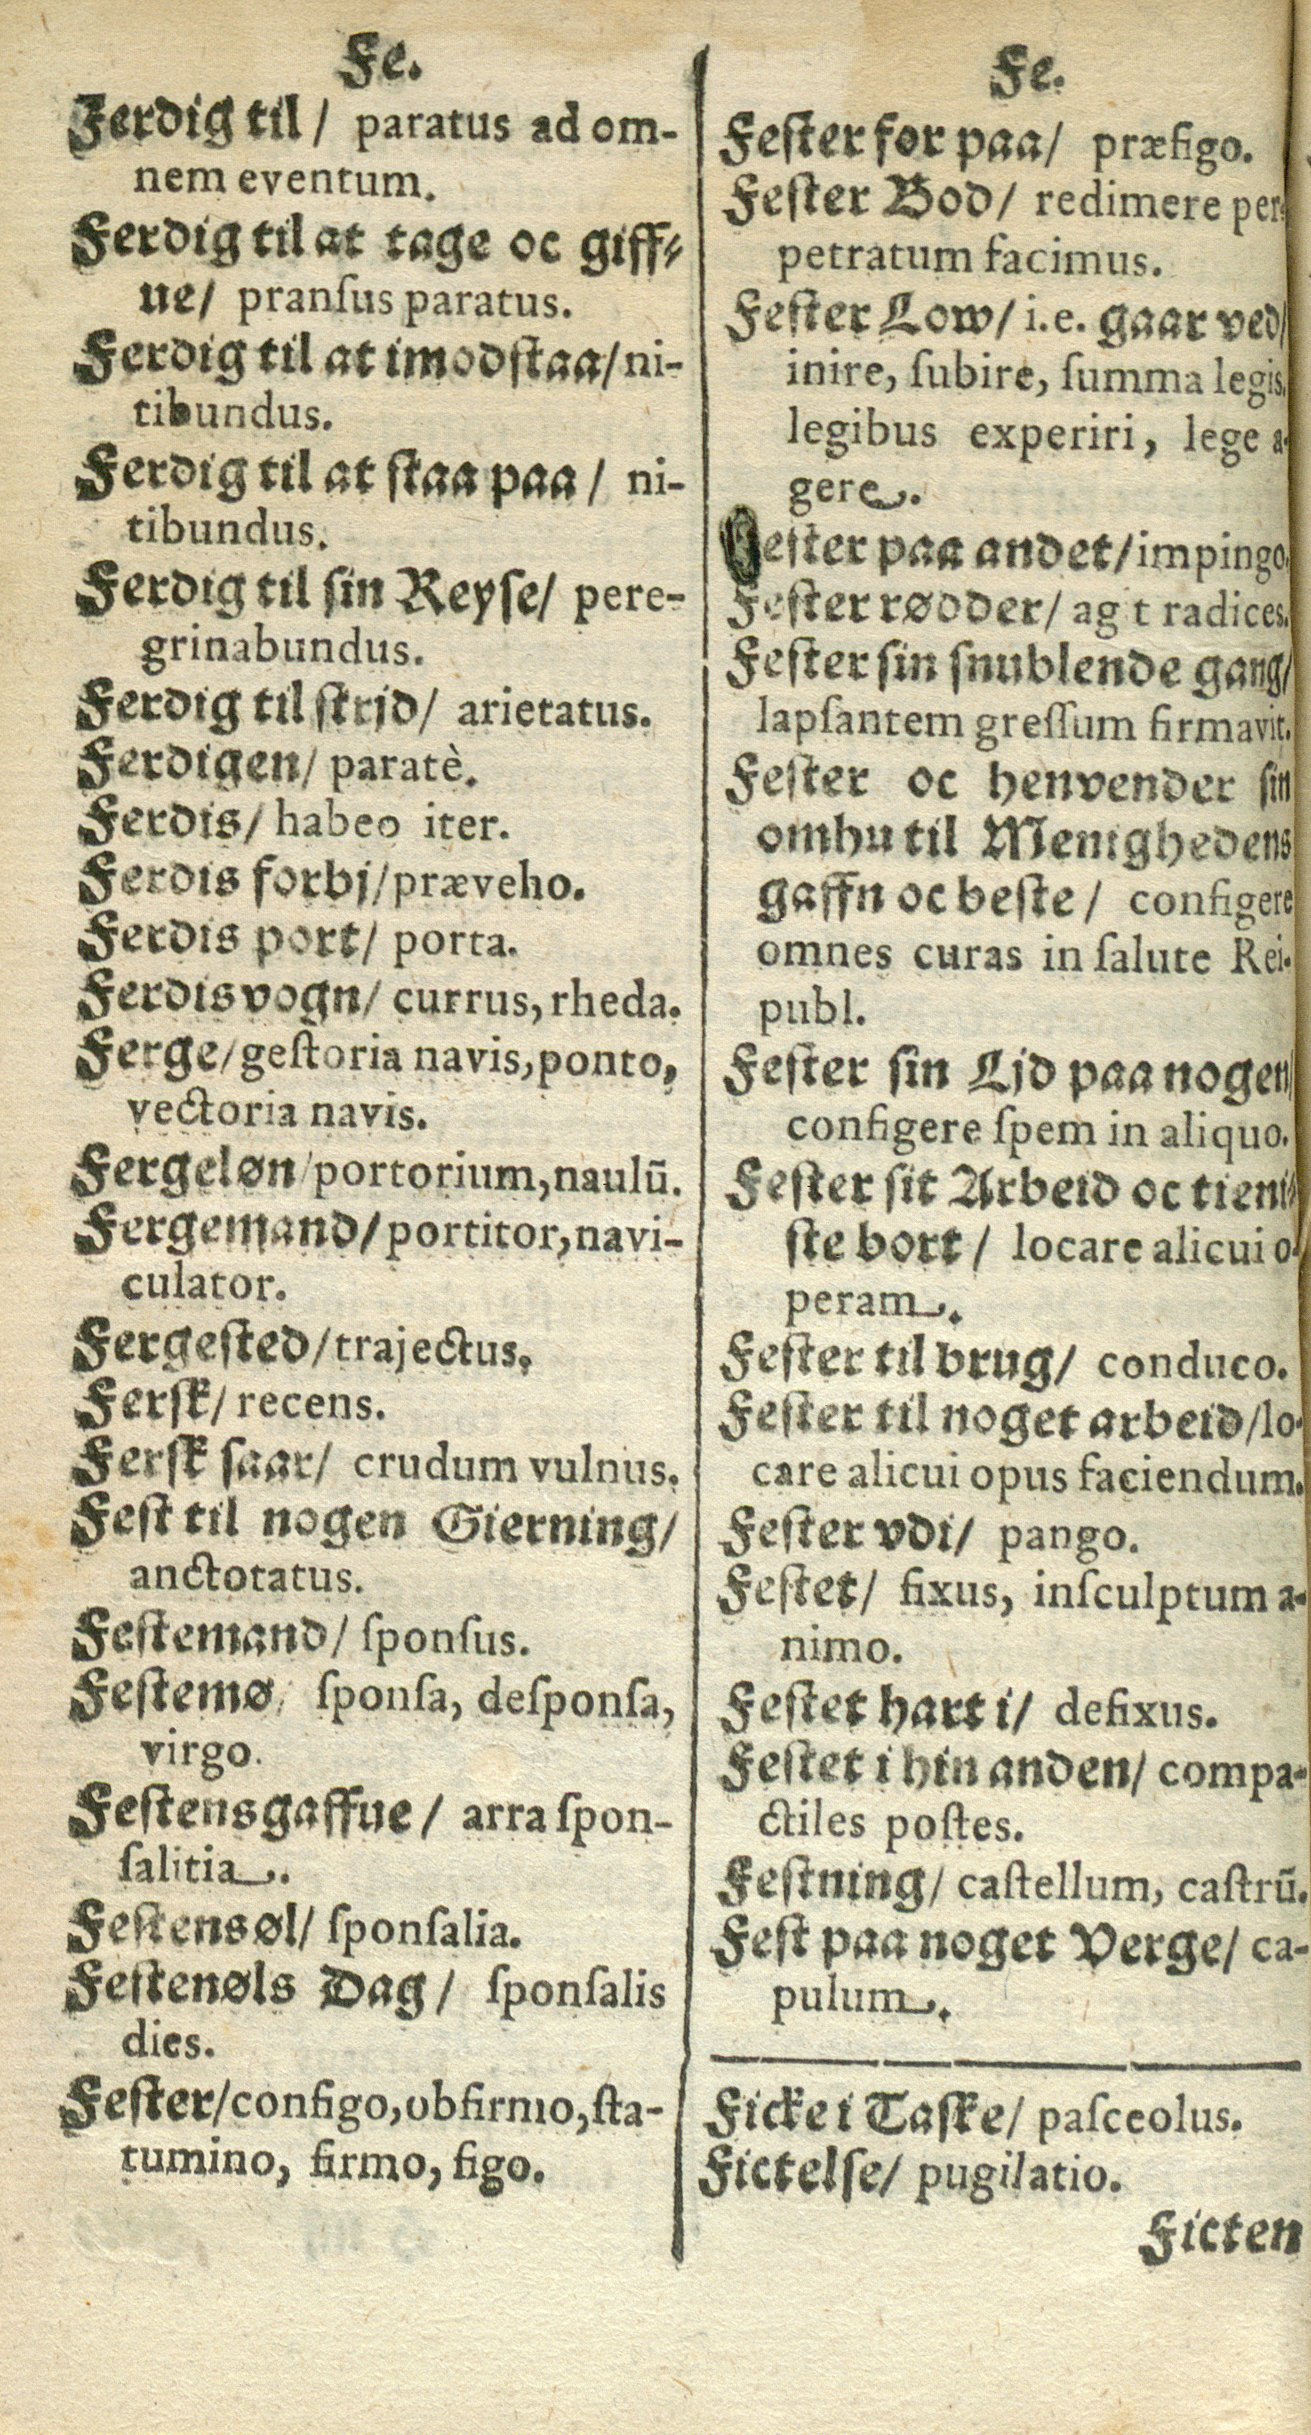 Fe.
Ferdig til / paratus ad om-
nem eventum.
Ferdig til at tage oc giff-
ue/ pranſus paratus.
Ferdig til at imodſtaa/ ni-
tibundus.
Ferdig til at ſtaa paa / ni-
tibundus.
Ferdig til ſin Reyſe/ pere-
grinabundus.
Ferdig til ſtrjd/ arietatus.
Ferdigen/ paratè.
Ferdis/ habeo iter.
Ferdis forbj/ præveho.
Ferdis port/ porta.
Ferdis vogn/ currus, rheda.
Ferge/ geſtoria navis, ponto,
vectoria navis.
Fergeløn/ portorium, naulū.
Fergemand/ portitor, navi-
culator.
Fergeſted/ trajectus.
Ferſk/ recens.
Ferſk ſaar/ crudum vulnus.
Feſt til nogen Gierning/
anctotatus.
Feſtemand/ ſponſus.
Feſtemø/ ſponſa, deſponſa,
virgo.
Feſtensgaffue/ arra ſpon-
ſalitia.
Feſtensøl/ ſponſalia.
Feſtenøls Dag/ ſponſalis
dies.
Feſter/ configo, obfirmo, ſta-
tumino, firmo, figo.
Fe.
Feſter for paa/ præfigo.
Feſter Bod/ redimere per-
petratum facimus.
Feſter Low/ i.e. gaar ved/
inire, ſubire, ſumma legis,
legibus experiri, lege a-
gere.
Feſter paa andet/ impingo.
Feſter rødder/ ag t radices.
Feſter ſin ſnublende gang/
lapſantem greſſum firmavit.
Feſter oc henvender ſin
omhu til Menighedens
gaffn oc beſte/ configere
omnes curas in ſalute Rei-
publ.
Feſter ſin Ljd paa nogen/
configere ſpem in aliquo.
Feſter ſit Arbeid oc tieni-
ſte bort/ locare alicui o-
peram.
Feſter til brug/ conduco.
Feſter til noget arbeid/ lo-
care alicui opus faciendum.
Feſter vdi/ pango.
Feſtet/ fixus, inſculptum a-
nimo.
Feſtet hart i/ defixus.
Feſtet i hin anden/ compa-
ctiles poſtes.
Feſtning/ caſtellum, caſtrū.
Feſt paa noget Verge/ ca-
pulum.
Ficke i Taſke/ paſceolus.
Fictelſe/ pugilatio.
Ficten